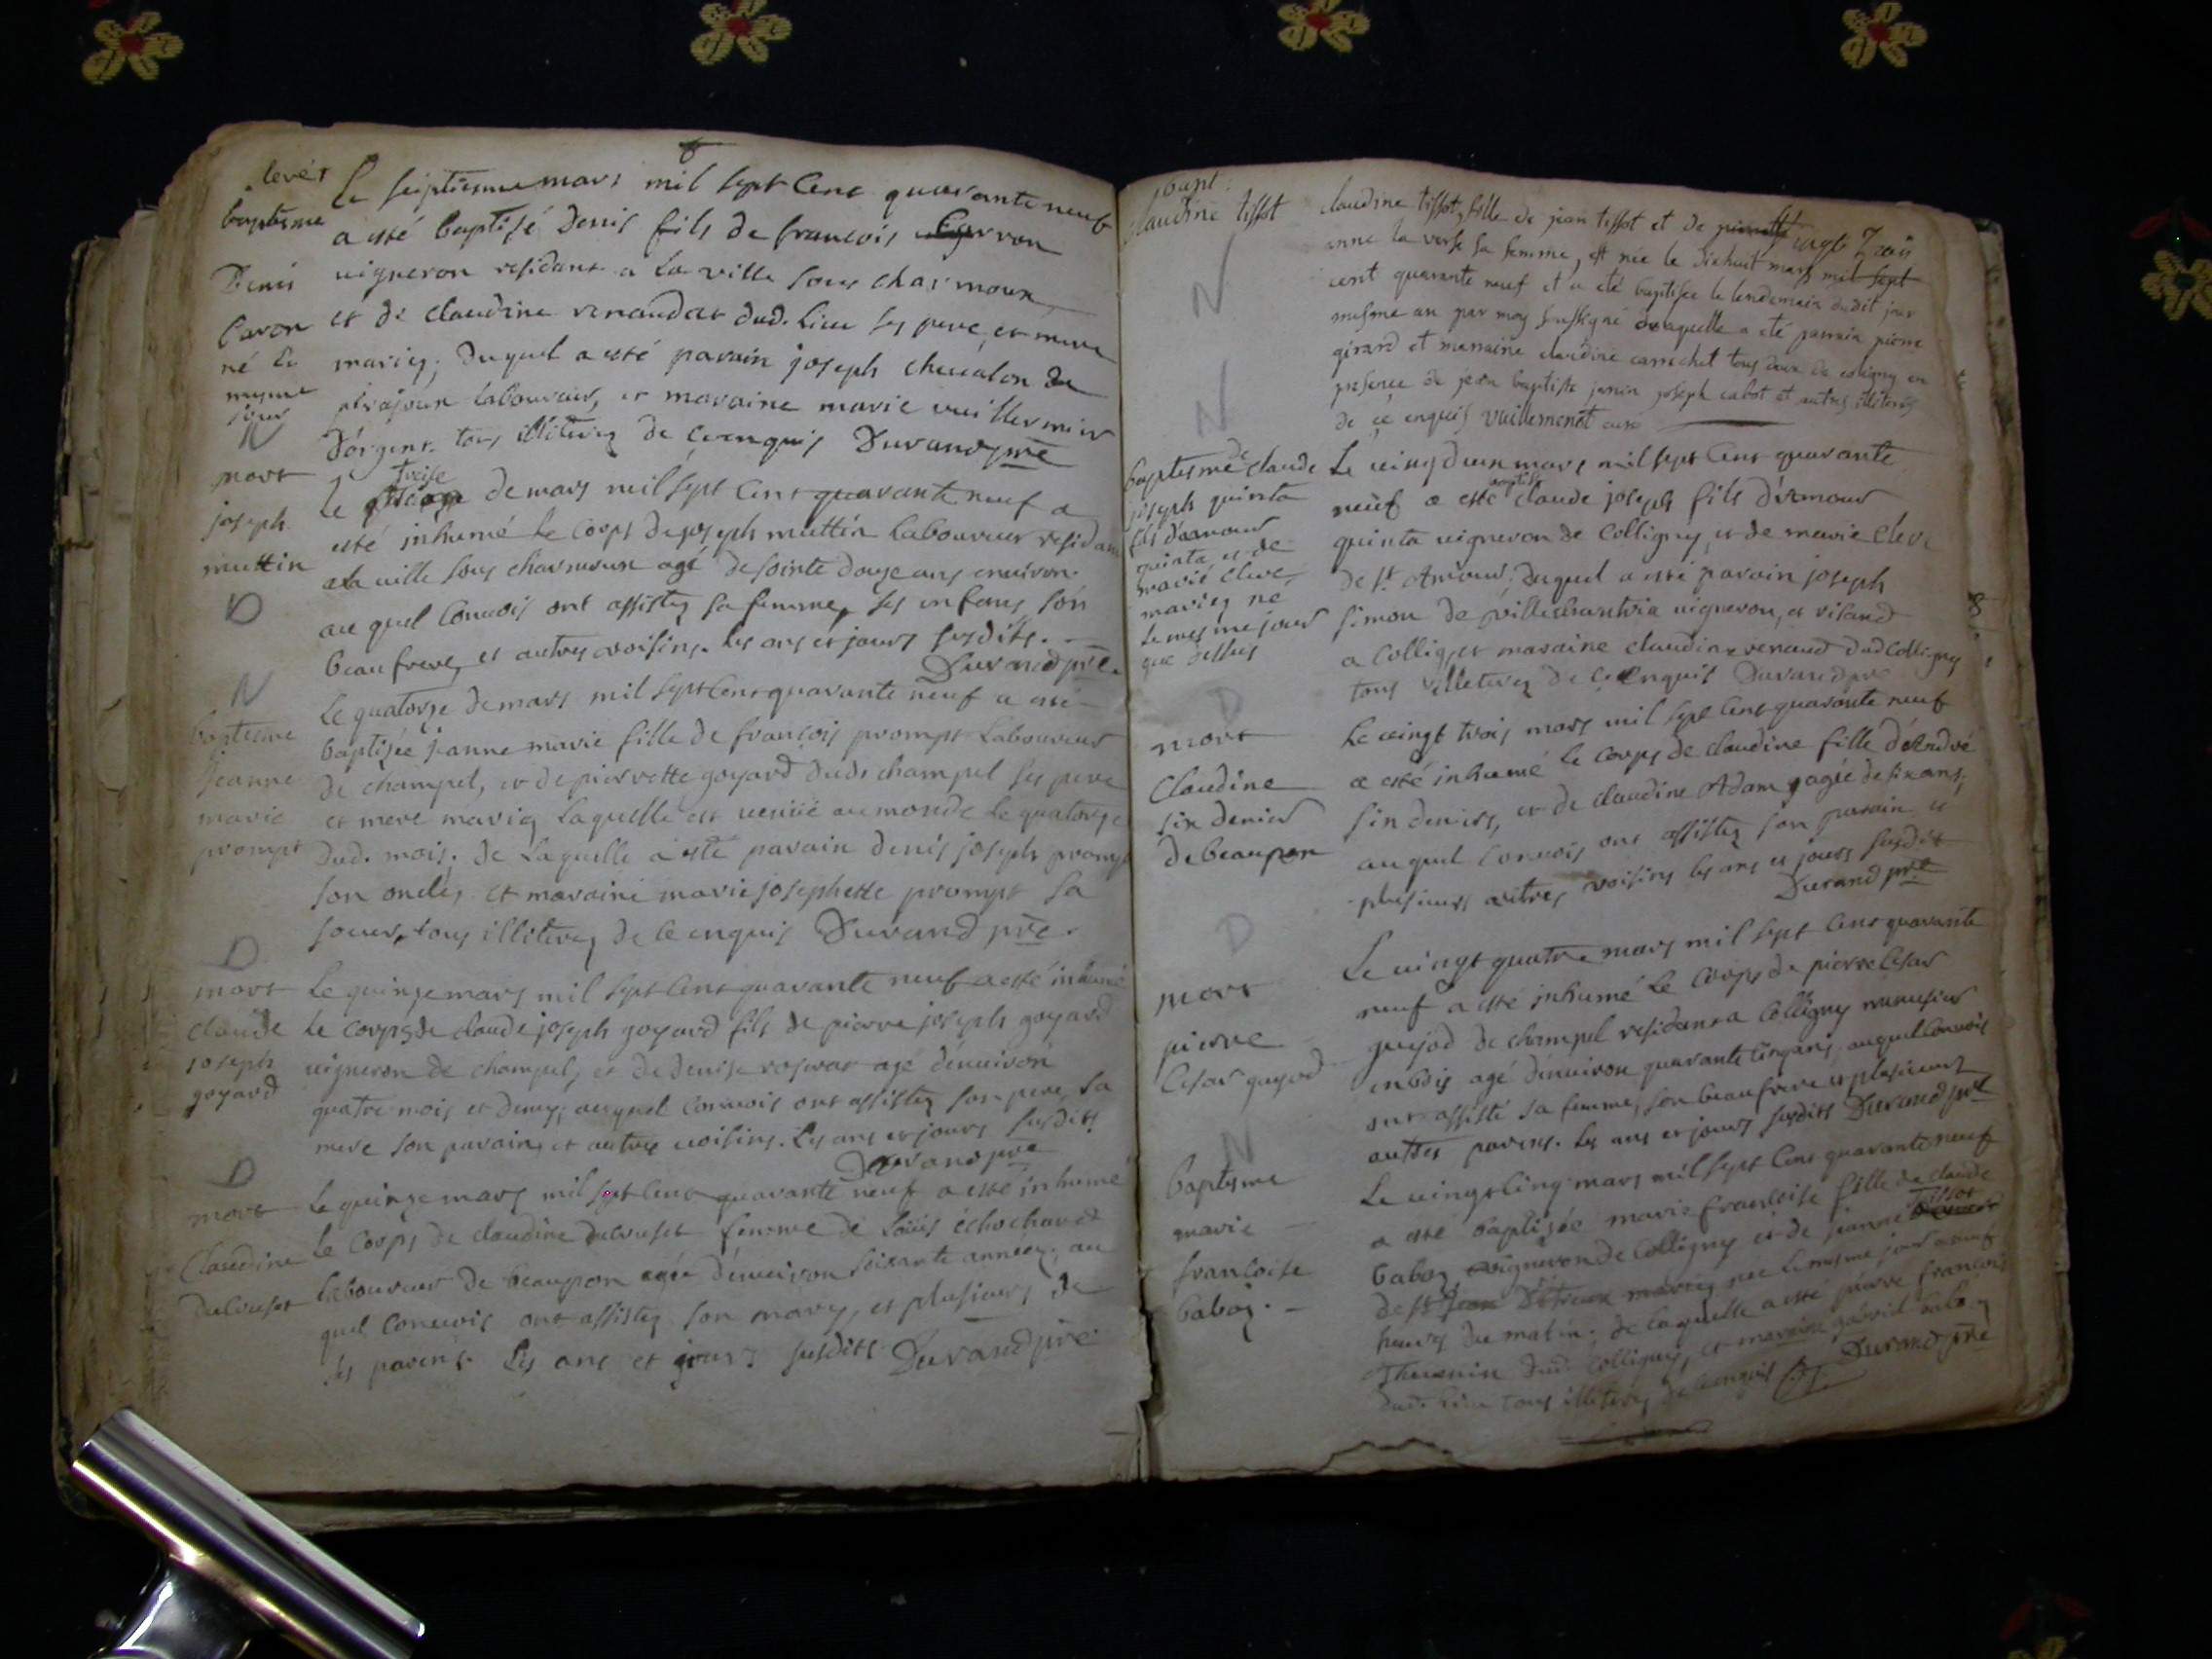 baptesme
Denis
Caron
né le
mesme
jour
N
Le septiesme mars mil sept Cent quarante neuf
a esté baptisé Denis fils de francois
vigneron residant a la ville sous charmoux
et de claudine renaudat dud. Lieu ses pere et mere
mariez; duquel a esté parain joseph chevalon de
laboureur, et maraine marie vuillermier
d'orgent. tous illiterez de ce enquis Durand pre
mort
joseph
muttin
D
Le treise de mars mil sept Cent quarante neuf a
esté inhumé le corps de joseph muttin laboureur residant
a la ville sous charmoux agé de soisante douze ans environ.
au quel Convois ont assistez sa femme, ses enfans, son
beaufrere, et autres voisins. les ans et jours susdits.
Durand pre.
N
baptesme
jeanne
marie
prompt
Le quatorze de mars mil sept Cent quarante neuf a esté
baptisée jeanne marie fille de francois prompt Laboureur
de champel, et de pierrette goyard dudt champel ses pere
et mere mariez laquelle est venüe au monde le quatorze
dud. mois. de Laquelle a esté parain denis joseph prompt
son oncle, et maraine marie josephette prompt sa
soeur, tous illiterez de ce enquis Durand pre.
D
mort
claude
joseph
goyard
Le quinze mars mil sept Cent quarante neuf a esté inhumé
Le corps de claude joseph goyard fils de pierre joseph goyard
vigneron de champel, et de denise agé d'environ
quatre mois et demy; auquel Convois ont assistez son pere, sa
mere son parain, et autres voisins. Les ans et jours susdits
Durand pre
D
mort
Claudine
Le quinze mars mil sept Cent quarante neuf a esté inhumé
Le Corps de claudine femme de Loüis échochard
laboureur de beaupon agée d'environ soisante années; au
quel Convois ont assistez son mary, et plusieurs de
ses parens. Les ans et jours susdits Durand pre
bapt.
claudine tissot
N
claudine tissot, fille de jean tissot et de
anne la verse sa femme, est née le dixhuit mars mil sept
cent quarante neuf et a eté baptisée le lendemain dudit jour
mesme an par moy soussigné de laquelle a eté parrain pierre
girard et marraine claudine carrichet tous deux de coligny en
presence de jean baptiste janin joseph cabot et autres illiterés
de ce enquis vuillemenot curé
N
baptesme de claude
joseph quinta
fils d'amour
quinta et de
marie clere
mariez né
le mesme jour
que dessus
Le vingt deux mars mil sept Cent quarante
neuf a esté baptisé claude joseph fils d'amour
quinta vigneron de Colligny, et de marie clere
de st. Amour; duquel a esté parain joseph
simon de vigneron,
a Colligny et maraine claudine renaud dud Colligny
tous illiterez de ce enquis Durand pre
D
mort
Claudine
six denier
de beaupon
Le vingt trois mars mil sept Cent quarante neuf
a esté inhumé le corps de claudine fille d'André
six deniers, et de claudine Adam, agée de six ans;
auquel Convois ont assistez son parain et
plusieurs autres voisins les ans et jours susdit
Durand pre
D
mort
pierre
Cesar guyod
Le vingt quatre mars mil sept Cent quarante
neuf a esté inhumé Le corps de pierre Cesar
guyod de champel residant a Colligny menusier
en bois agé d'environ quarante Cinq ans; auquel Convois
ont assisté sa femme, son beaufrere et plusieurs
autres parens. les ans et jours susdits Durand pre
N
baptesme
marie
francoise
baboz.
Le vingt Cinq mars mil sept Cent quarante neuf
a esté baptisée marie francoise fille de claude
baboz vigneron de Colligny et de jeanne Tissot
de st mariez née le mesme jour a neuf
heures du matin. de laquelle a esté pierre francois
Thevenin dud. Colligny, et maraine baboz
dud. Lieu tous illiterez de ce enquis Durand pre